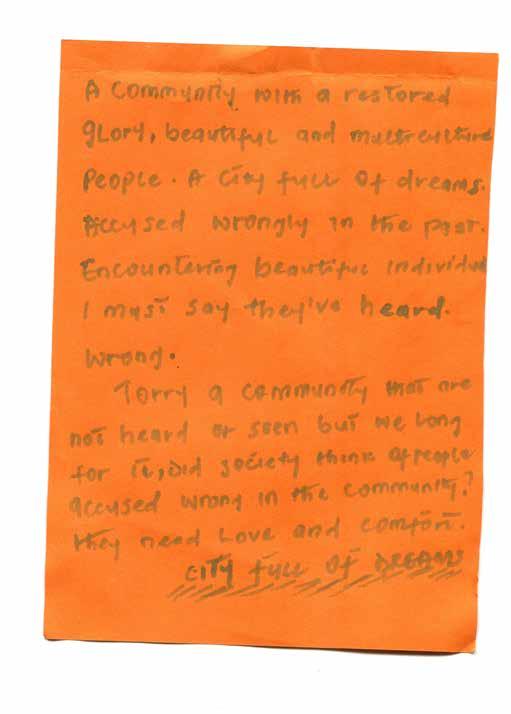 A community with a restored
glory, beautiful and multiculture
people. A city full of dreams.
Accused wrongly in the past.
Encountering beautiful individual
I must say they've heard.
wrong.
Torry a community that are
not heard or seen but we long
for it, Did society think of people
accused wrong in the community?
they need Love and comfort.
CITY full OF DREAMS